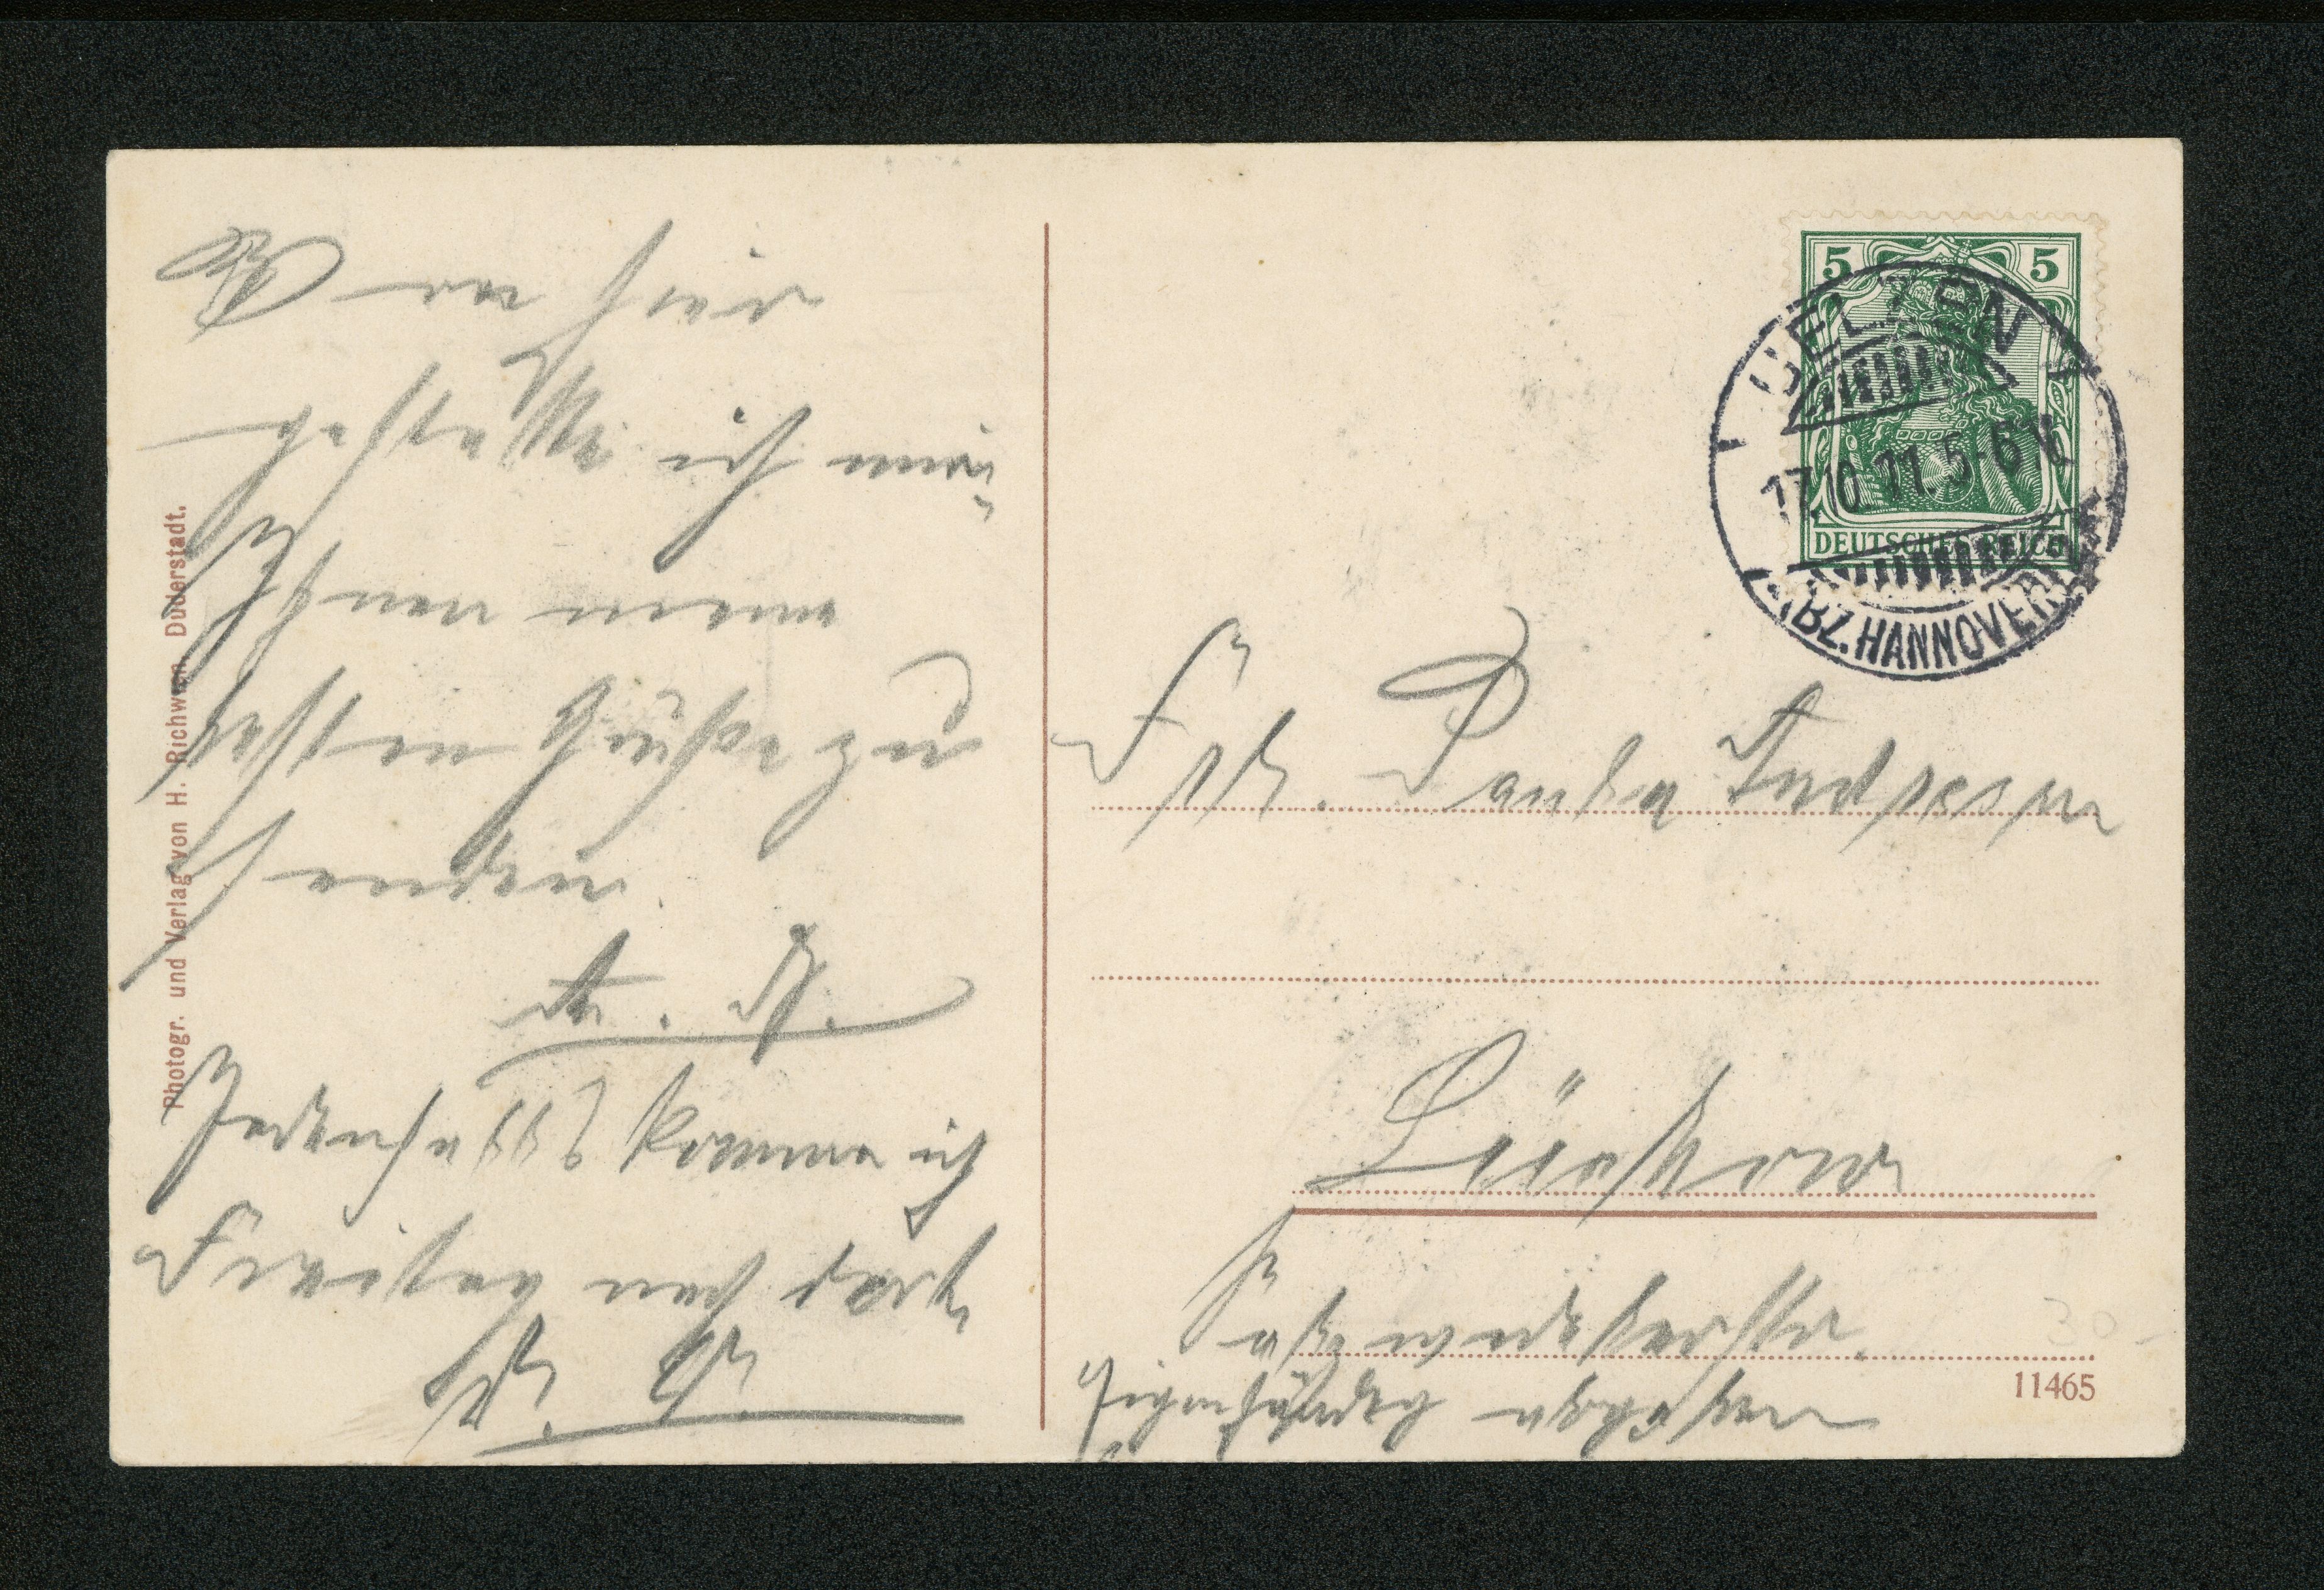 Von hier
gestatte ich mir,
Ihnen meine
besten Grüße zu
senden.
Jedenfalls komme ich
Freitag nach dort.
D. O.
Photogr. und Verlag von H. Richwien, Duderstadt.
5 5
UELZEN
17.10.11. 5-6 N
DEUTSCHES REICH
(BZ. HANNOVER)
Frl. Paula
Lüchow
Eigenhändig abzugeben
11465